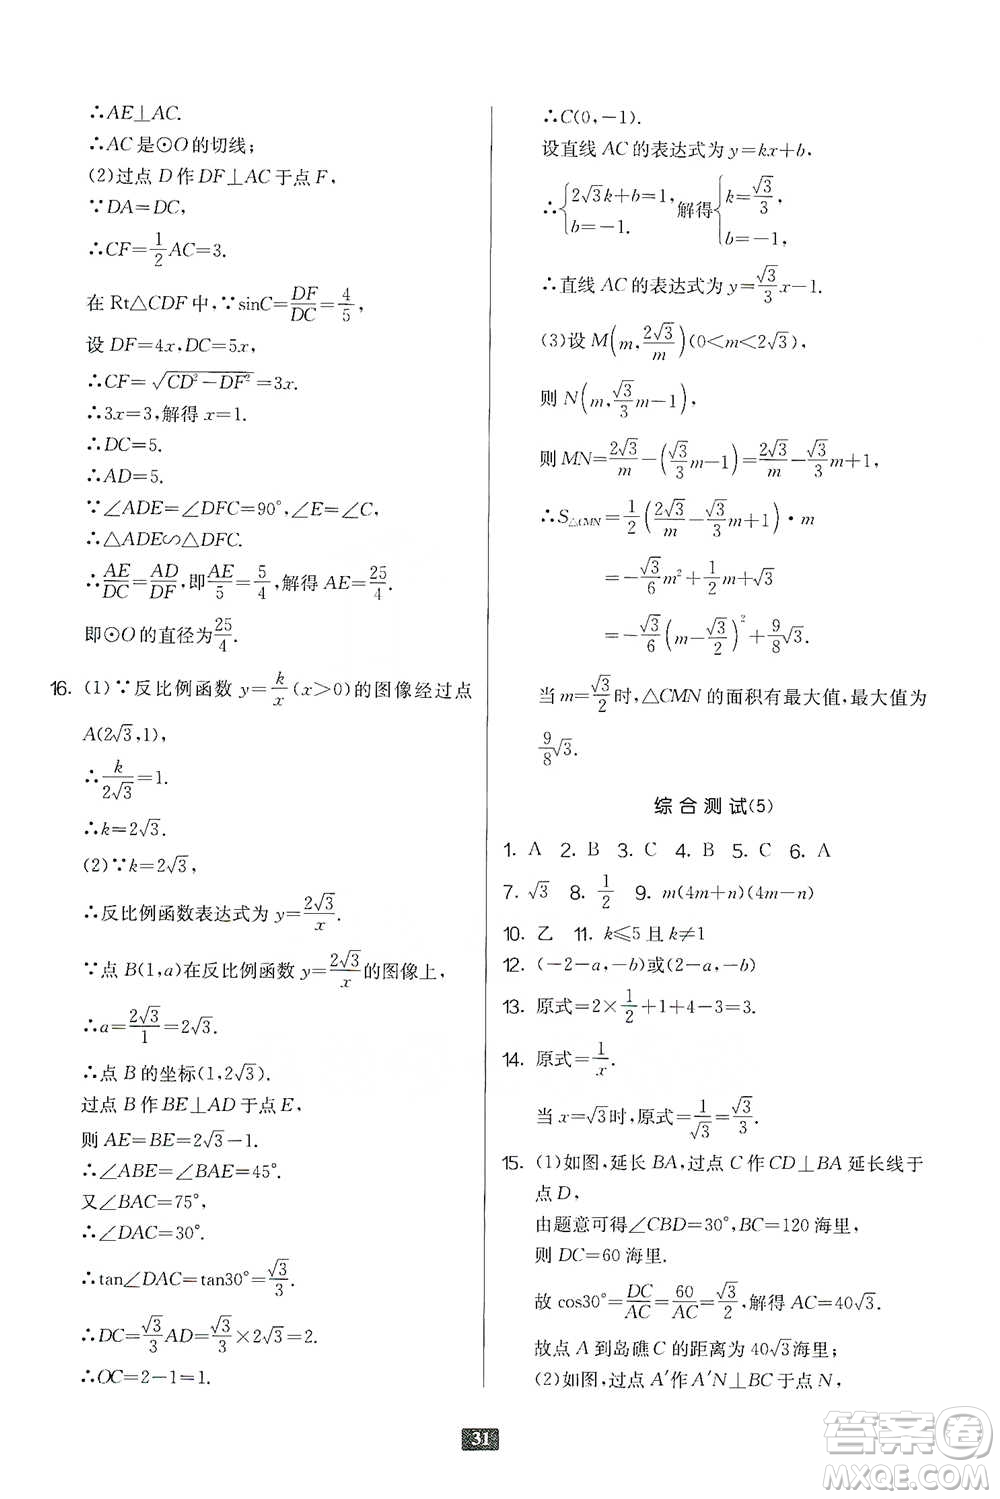 ∴AE⊥AC.
∴AC是⊙O的切线；
(2)过点D作DF⊥AC于点F，
∵DA=DC，
∴CF=1/2AC=3.
在Rt△CDF中，∵sinC=DF/DC=4/5，
设DF=4x，DC=5x，
∴CF=√(CD²−DF²)=3x.
∴3x=3，解得x=1.
∴DC=5.
∴AD=5.
∵∠ADE=∠DFC=90°，∠E=∠C，
∴△ADE∽△DFC.
∴AE/DC=AD/DF，即AE/5=5/4，解得AE=25/4.
即⊙O的直径为25/4.
16. (1)∵反比例函数y=k/x(x>0)的图像经过点
A(2√3,1)，
∴k/2√3=1.
∴k=2√3.
(2)∵k=2√3，
∴反比例函数表达式为y=2√3/x.
∵点B(1,a)在反比例函数y=2√3/x的图像上，
∴a=2√3/1=2√3.
∴点B的坐标(1,2√3).
过点B作BE⊥AD于点E，
则AE=BE=2√3−1.
∴∠ABE=∠BAE=45°.
又∠BAC=75°，
∴∠DAC=30°.
∴tan∠DAC=tan30°=√3/3.
∴DC=√3/3AD=√3/3×2√3=2.
∴OC=2−1=1.
∴C(0,−1).
设直线AC的表达式为y=kx+b，
∴{2√3k+b=1, b=−1. 解得{k=√3/3, b=−1,
∴直线AC的表达式为y=√3/3x−1.
(3)设M(m,2√3/m)(0<m<2√3)，
则N(m,√3/3m−1)，
则MN=2√3/m−(√3/3m−1)=2√3/m−√3/3m+1，
∴S△CMN=1/2(2√3/m−√3/3m+1)·m
=−√3/6m²+1/2m+√3
=−√3/6(m−√3/2)²+9/8√3.
当m=√3/2时，△CMN的面积有最大值，最大值为
9/8√3.
综合测试(5)
1. A 2. B 3. C 4. B 5. C 6. A
7. √3 8. 1/2 9. m(4m+n)(4m−n)
10. 乙 11. k≤5且k≠1
12. (−2−a,−b)或(2−a,−b)
13. 原式=2×1/2+1+4−3=3.
14. 原式=1/x.
当x=√3时，原式=1/√3=√3/3.
15. (1)如图，延长BA，过点C作CD⊥BA延长线于
点D，
由题意可得∠CBD=30°，BC=120海里，
则DC=60海里.
故cos30°=DC/AC=60/AC=√3/2，解得AC=40√3.
故点A到岛礁C的距离为40√3海里；
(2)如图，过点A′作A′N⊥BC于点N，
31
答案圈
MXQE.COM